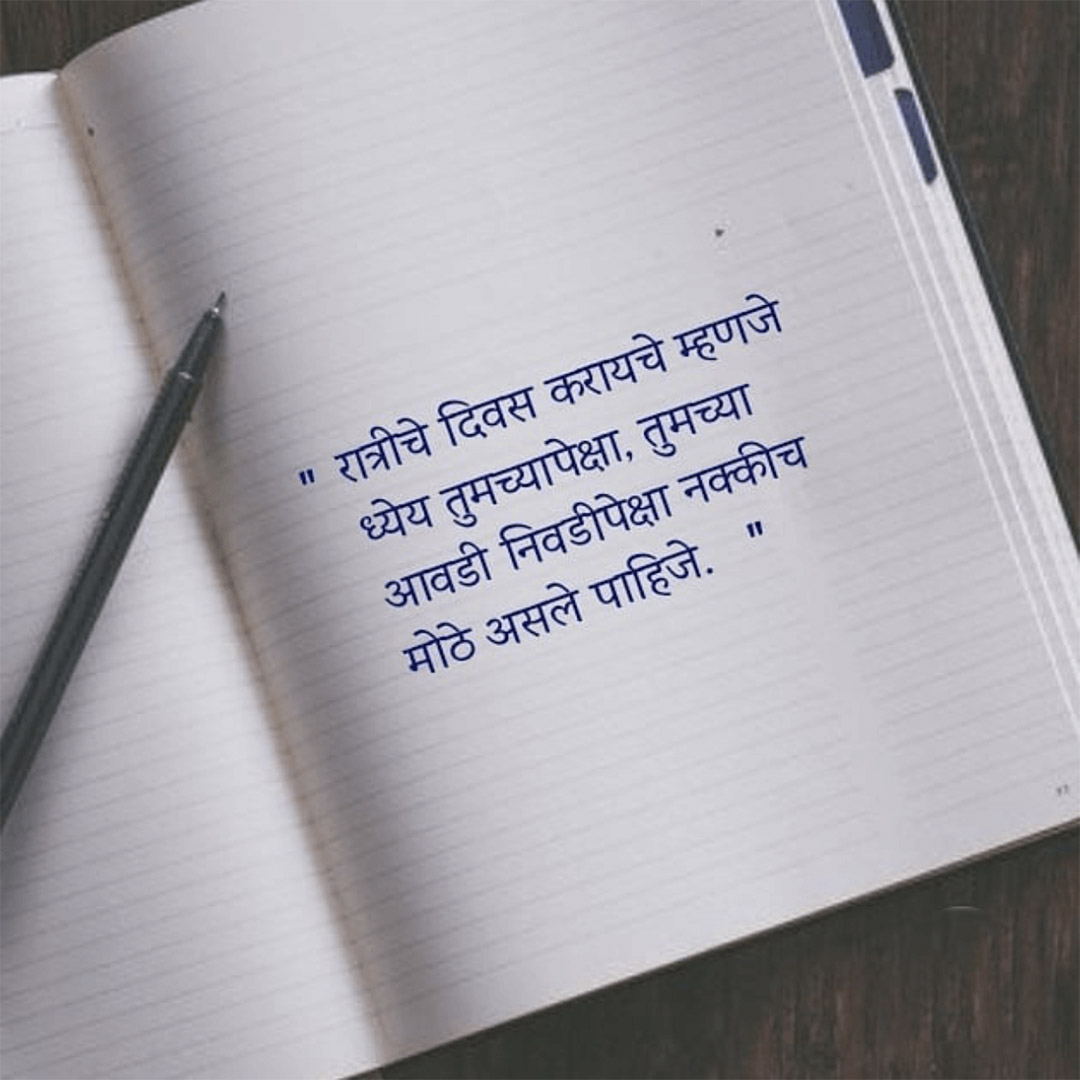 " रात्रीचे दिवस करायचे म्हणजे
ध्येय तुमच्यापेक्षा, तुमच्या
आवडी निवडीपेक्षा नक्कीच
मोठे असले पाहिजे. "